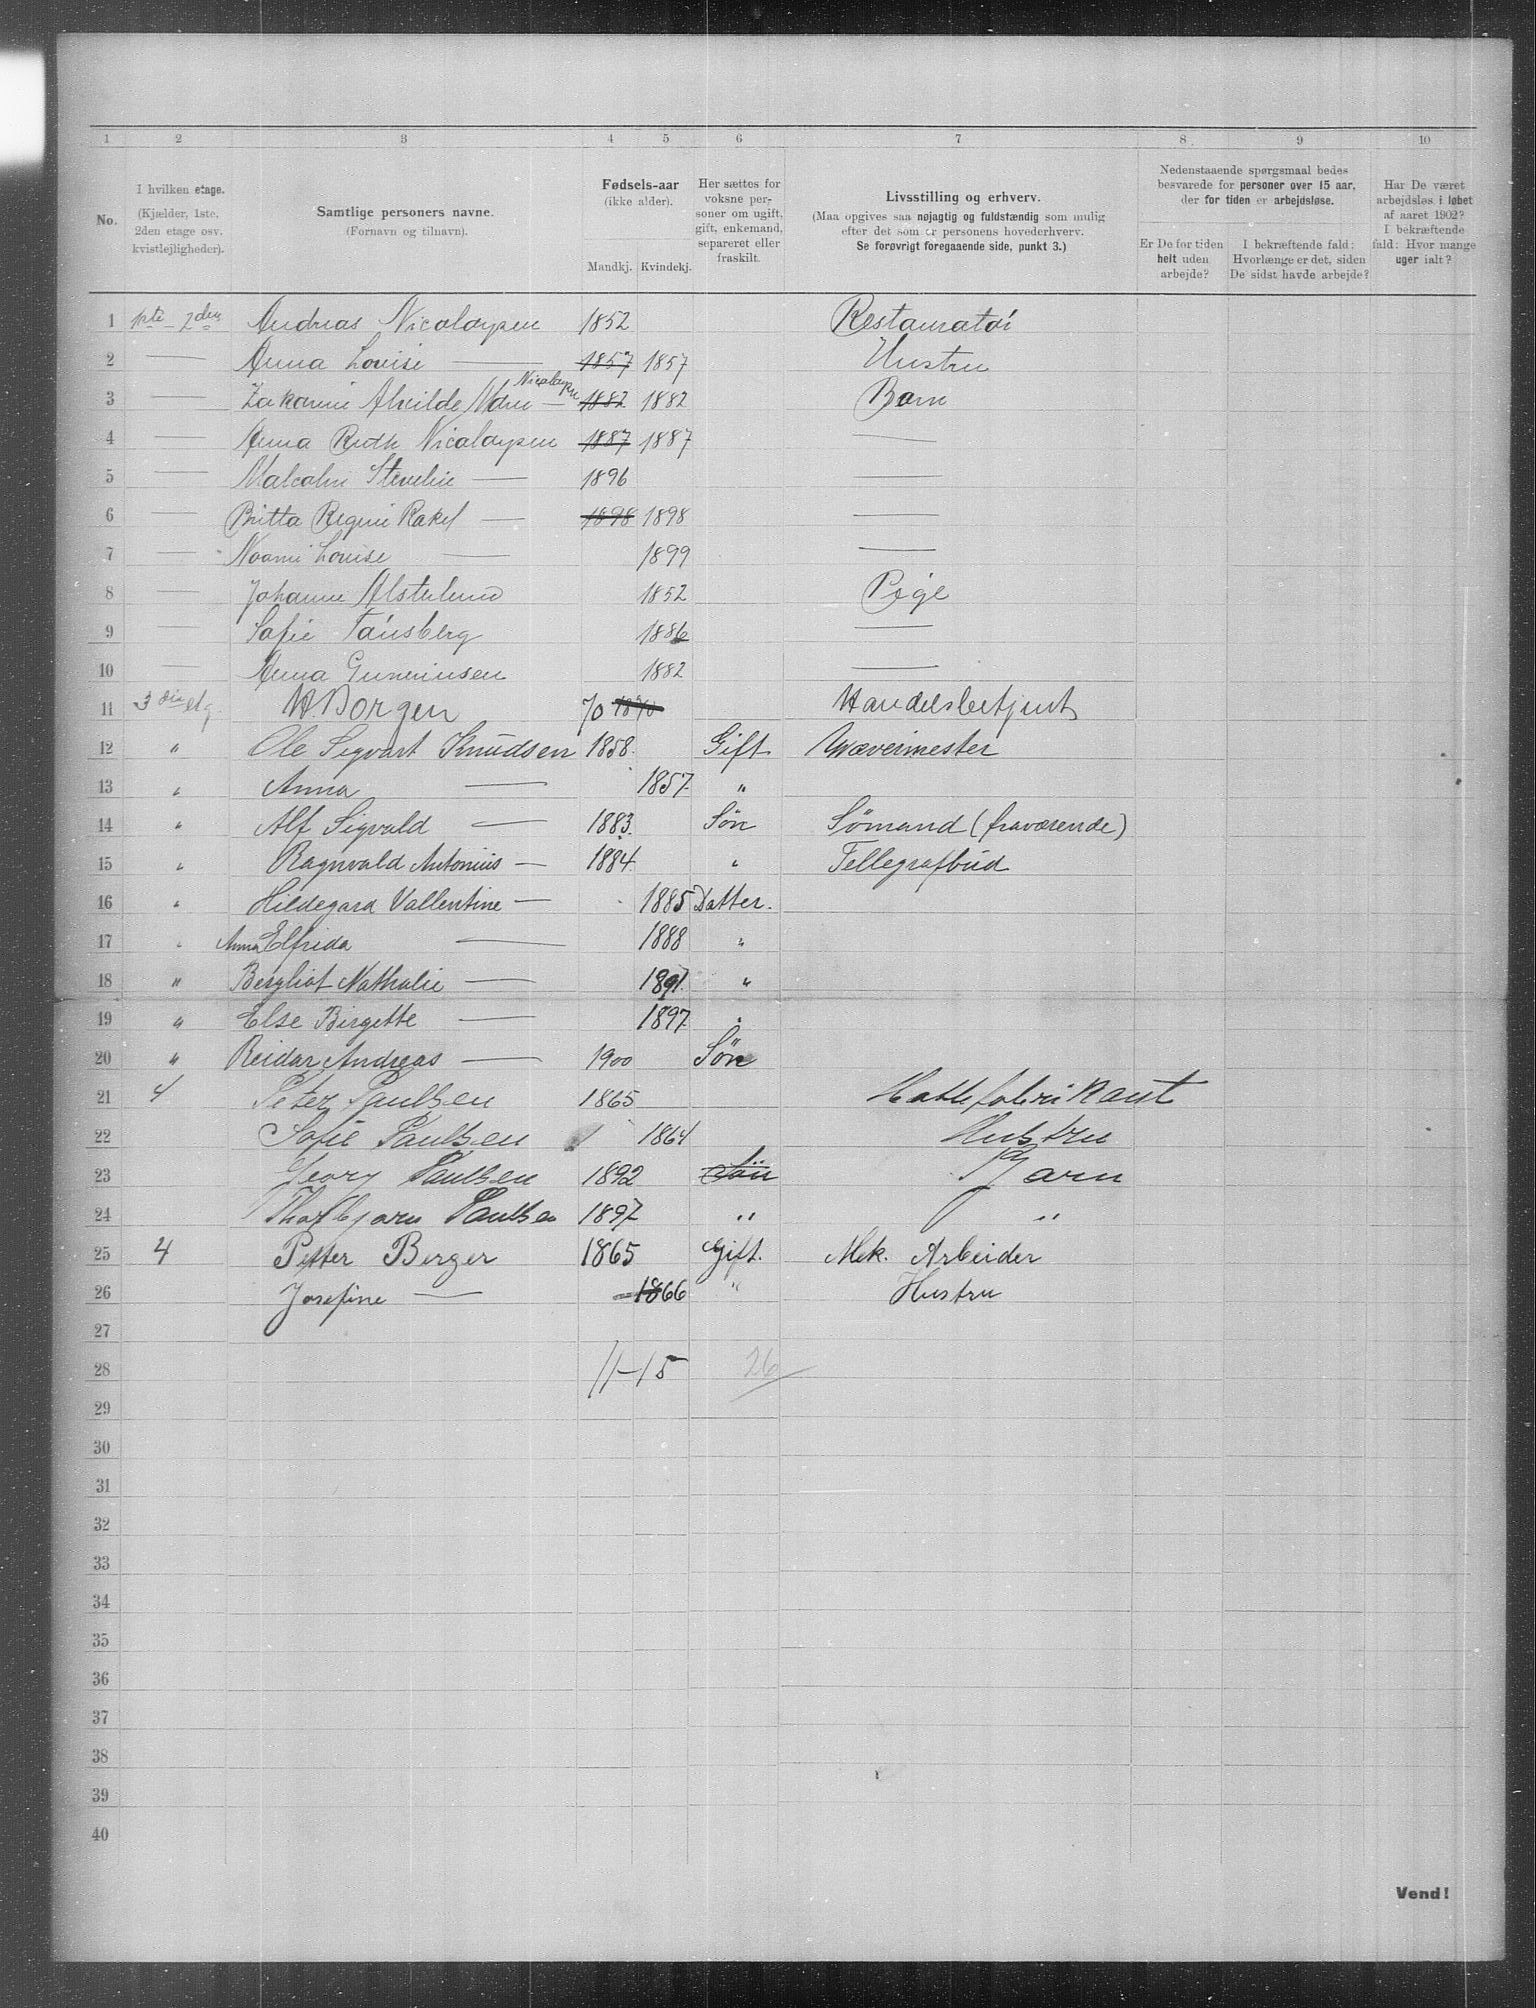 1 2 3 4 5 6 7 8 9 10
No.
I hvilken etage.
(Kjælder, 1ste,
2den etage osv.
kvistlejligheder).
Samtlige personers navne.
(Fornavn og tilnavn).
Fødsels-aar
(ikke alder).
Mandkj. Kvindekj.
Her sættes for
voksne per-
soner om ugift,
gift, enkemand,
separeret eller
fraskilt.
Livsstilling og erhverv.
(Maa opgives saa nøjagtig og fuldstændig som mulig
efter det som er personens hovederhverv.
Se forøvrigt foregaaende side, punkt 3.)
Nedenstaaende spørgsmaal bedes
besvarede for personer over 15 aar,
der for tiden er arbejdsløse.
Er De for tiden
helt uden
arbejde?
I bekræftende fald:
Hvorlænge er det, siden
De sidst havde arbejde?
Har De været
arbejdsløs i løbet
af aaret 1902?
I bekræftende
fald: Hvor mange
uger ialt?
1 pte 2den Andreas Nicolaysen 1852 Restauratør
2 — Anna Louise — 1857 1857 Hustru
3 — Zakarine Alvilde Nicolaysen — 1882 1882 Barn
4 — Anna Ruth Nicolaysen 1887 1887 —
5 — Malcolm — 1896 —
6 — Britta Regine Rakel — 1898 1898 —
7 — Noami Louise — 1899 —
8 — Johanne Alsterlund 1852 Pige
9 — Sofie Tønsberg 1886 —
10 — Anna Guneriusen 1882 —
11 3die etg H. Borgen 70 1870 Handelsbetjent
12 " Ole Sigvart Knudsen 1858 Gift Vævermester
13 " Anna — 1857 "
14 " Alf Sigvald — 1883. Søn Sømand (fraværende)
15 " Ragnvald Antonius — 1884. " Tellegrafbud
16 " Hildegard Vallentine — 1885 Datter.
17 " Anna Elfrida — 1888 "
18 " Bergliot Nathalie — 1891. "
19 " Else Birgette — 1897 "
20 " Reidar Andreas — 1900 Søn
21 4 Peter Paulsen 1865 Hattefabrikant
22 Sofie Paulsen 1864 Hustru
23 Georg Paulsen 1892 Søn Barn
24 Thorbjørn Paulsen 1897 " "
25 4 Petter Berger 1865 Gift. Mek. Arbeider
26 Josefine — 1866 " Hustru
27
28 11-15 26
29
30
31
32
33
34
35
36
37
38
39
40
Vend!